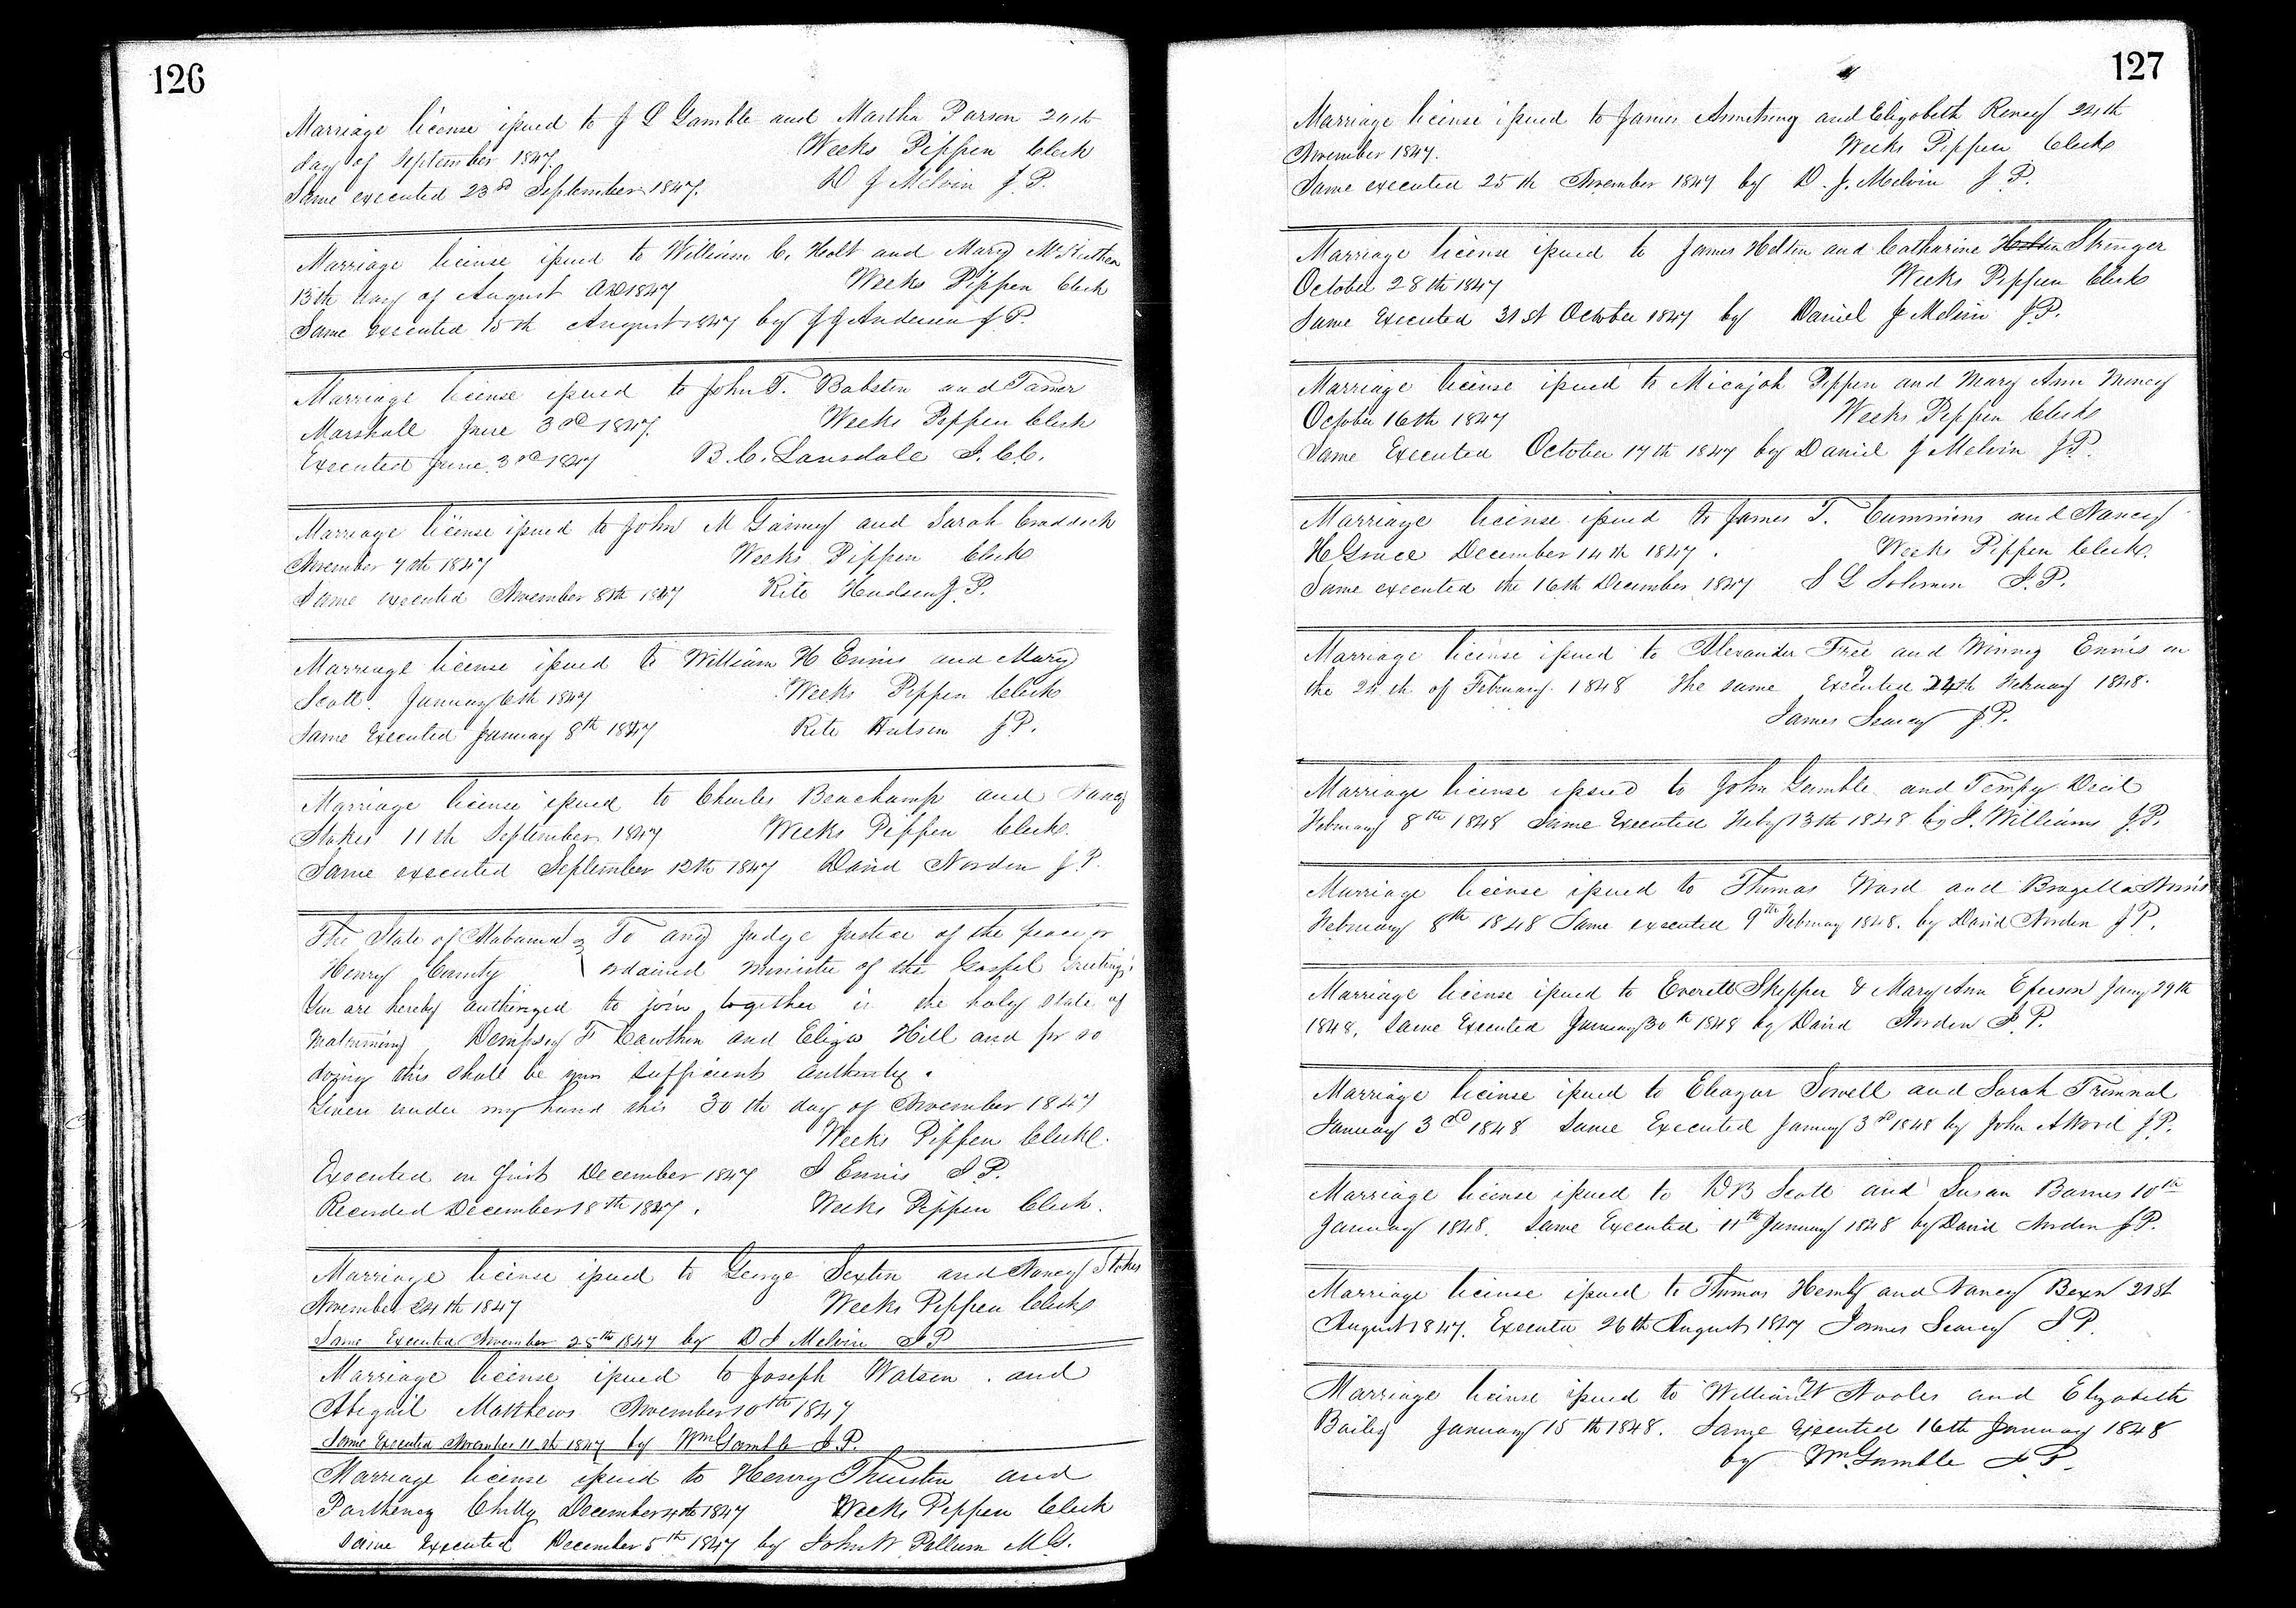 126
Marriage license issued to J L Gamble and Martha Parson 20th
day of September 1847. Weeks Pippen Clerk
Same executed 23rd September 1847. D J Melvin J. P.
Marriage license issued to William C. Holt and Mary
15th day of August AD 1847 Weeks Pippen Clerk
Same Executed 15th August 1847 by J J Anderson J P.
Marriage license issued to John T. Bolsten and Tamer
Marshall June 3rd 1847. Weeks Pippen Clerk
Executed June 3rd 1847 B. C. Lansdale J. C. C.
Marriage license issued to John M Gainey and Sarah Craddock
November 7th 1847 Weeks Pippen Clerk
Same executed November 8th 1847 Rite Hudson J. P.
Marriage license issued to William H Ennis and Mary
Scott. January 6th 1847 Weeks Pippen Clerk
Same Executed January 8th 1847 Rite Hutson J P.
Marriage license issued to Charles Beachamp and Nancy
Stokes 11th September 1847 Weeks Pippen Clerk
Same executed September 12th 1847 David Norden J P.
The State of Alabama To any Judge Justice of the peace or
Henry County ordained minister of the Gospel Greeting:
You are hereby authorized to join together in the holy state of
Matrimony Dempsey F Cawthon and Eliza Hill and for so
doing this shall be your sufficient authority.
Given under my hand this 30th day of November 1847
Weeks Pippen Clerk.
Executed on first December 1847 J Ennis J. P.
Recorded December 18th 1847. Weeks Pippen Clerk.
Marriage license issued to George Sexton and Nancy Stokes
November 24th 1847 Weeks Pippen Clerk
Same Executed November 25th 1847 by D J Melvin J P
Marriage license issued to Joseph Watson and
Abigail Matthews November 10th 1847
Same Executed November 11th 1847 by Wm Gamble J. P.
Marriage license issued to Henry Thurston and
Partheney Chitty December 4th 1847 Weeks Pippen Clerk
Same Executed December 5th 1847 by John W Pellum M. G.
127
Marriage license issued to James Armstrong and Elizabeth Reney 24th
November 1847. Weeks Pippen Clerk
Same executed 25th November 1847 by D. J. Melvin J P.
Marriage license issued to James Holton and Catharine Holton Stringer
October 28th 1847 Weeks Pippen Clerk
Same Executed 31st October 1847 by Daniel J Melvin J. P.
Marriage license issued to Micajah Pippen and Mary Ann Money
October 16th 1847 Weeks Pippen Clerk
Same Executed October 17th 1847 by Daniel J Melvin J P.
Marriage license issued to James T. Cummins and Nancy
H Grace December 14th 1847. Weeks Pippen Clerk.
Same executed the 16th December 1847 S L Solomon J. P.
Marriage license issued to Alexander Free and Winney Ennis on
the 24th of February 1848 The same Executed 24th February 1848.
James Searcy J P.
Marriage license issued to John Gamble and Tempy Deal
February 8th 1848 Same Executed Feby 13th 1848 by J. Williams J. P.
Marriage license issued to Thomas Ward and
February 8th 1848 Same executed 9th February 1848. by David Norden J P.
Marriage license issued to Everett Skipper & Mary Ann Eperson Jany 29th
1848. Same Executed January 30th 1848 by David Norden J. P.
Marriage license issued to Eleazar Sowell and Sarah Trimnal
January 3rd 1848 Same Executed January 3rd 1848 by John A Word J. P.
Marriage license issued to W B Scott and Susan Barnes 10th
January 1848. Same Executed 11th January 1848 by David Norden J P.
Marriage license issued to Thomas Hemby and Nancy 21st
August 1847. Executed 26th August 1847 James Searcy J P.
Marriage license issued to William W Nooles and Elizabeth
Bailey January 15th 1848. Same Executed 16th January 1848
by Wm Gamble J. P.